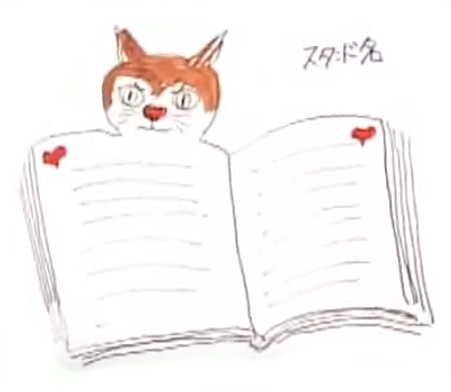 スタンド名